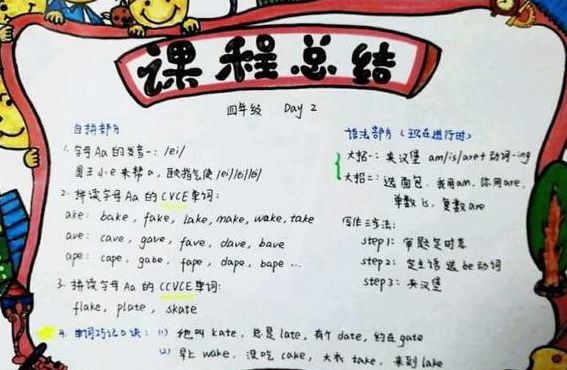 课程总结
四年级 Day 2
自拼部分
1. 字母Aa的发音一: /ei/
勇士小e来帮a, 耿直指气使/ei//ei//ei/
2. 拼读字母Aa的CVCE单词:
ake: bake, fake, lake, make, wake, take
ave: cave, gave, fave, dave, bave
ape: cape, gabe, fape, dape, bape ...
3. 拼读字母Aa的CCVCE单词:
flake, plate, skate
4. 单词巧记口诀: (1) 他叫kate, 总是late, 有个date, 约在gate
(2) 早上wake, 没吃cake, 大叔take, 来到lake
语法部分 (现在进行时)
大招一: 夹汉堡 am/is/are+动词-ing
大招二: 选面包, 我用am, 你用are,
单数is, 复数are
写作三步法:
step 1: 审题定时态
step 2: 定主语选be动词
step 3: 夹汉堡